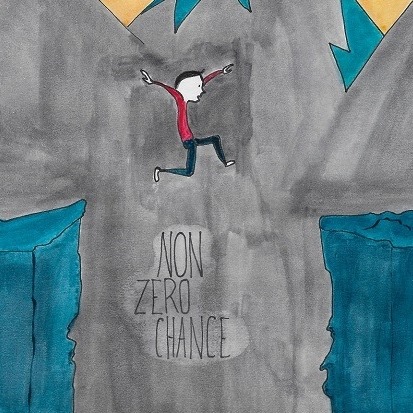 NON
ZERO
CHANCE